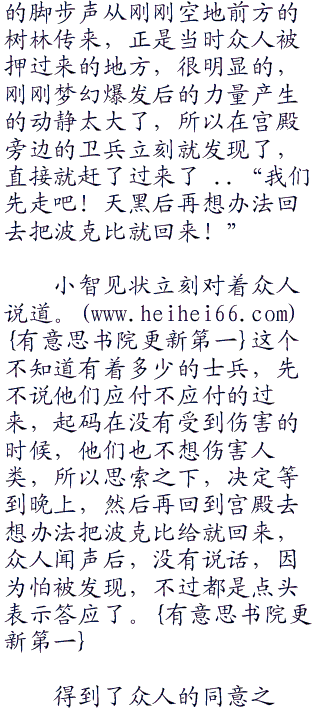 的脚步声从刚刚空地前方的
树林传来，正是当时众人被
押过来的地方，很明显的，
刚刚梦幻爆发后的力量产生
的动静太大了，所以在宫殿
旁边的卫兵立刻就发现了，
直接就赶了过来了 ..“我们
先走吧！天黑后再想办法回
去把波克比就回来！”
小智见状立刻对着众人
说道。(www.heihei66.com)
{有意思书院更新第一}这个
不知道有着多少的士兵，先
不说他们应付不应付的过
来，起码在没有受到伤害的
时候，他们也不想伤害人
类，所以思索之下，决定等
到晚上，然后再回到宫殿去
想办法把波克比给就回来，
众人闻声后，没有说话，因
为怕被发现，不过都是点头
表示答应了。{有意思书院更
新第一}
得到了众人的同意之